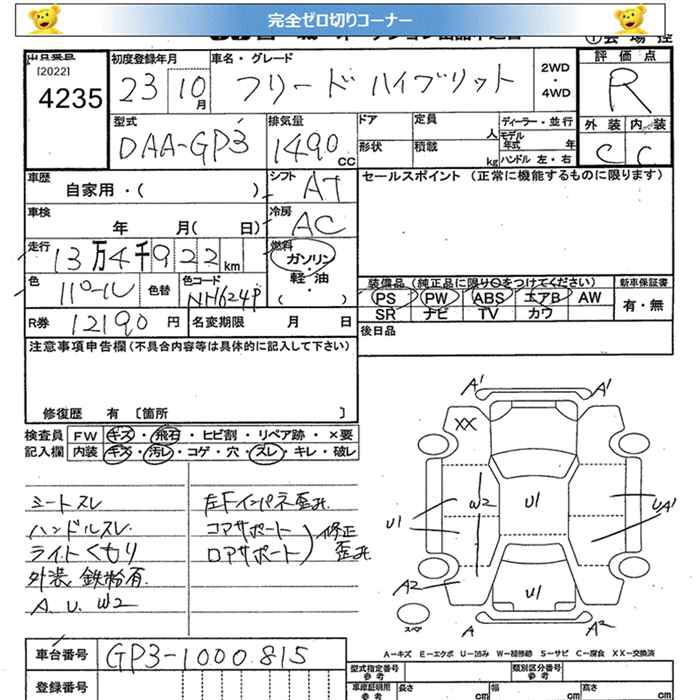 完全ゼロ切りコーナー
[2022]
4235
初度登録年月
23 10月
車名・グレード
フリード ハイブリット
2WD
・
4WD
評価点
R
外装 内装
C C
型式
DAA-GP3
排気量
1490 cc
ドア
定員
人
形状
積載
kg
ディーラー・並行
モデル年式 年
ハンドル 左・右
車歴
自家用・( )
シフト AT
セールスポイント (正常に機能するものに限ります)
車検
年 月( 日)
冷房 AC
走行
13万4千922km
燃料
ガソリン
・
軽油
( )
色 パール
色替
色コード NH624P
装備品 (純正品に限り○をつけてください)
新車保証書
PS PW ABS エアB AW
有・無
SR ナビ TV カワ
R券 12190 円
名変期限 月 日
後日品
注意事項申告欄(不具合内容等は具体的に記入して下さい)
修復歴 有 〔箇所 〕
検査員 FW キズ・飛石・ヒビ割・リペア跡・×要
記入欄 内装 キズ・汚レ・コゲ・穴・スレ・キレ・破レ
シートスレ
ハンドルスレ
ライトくもり
外装 鉄粉有
A. U. W2
左Fインパネ歪み
コアサポート
ロアサポート
修正歪み
A1 A1
XX
W2
U1
U1
UA1
A2
U1
スペア
A A2
A=キズ E=エクボ U=凹み W=補修跡 S=サビ C=腐食 XX=交換済
車台番号 GP3-1000815
登録番号
型式指定番号
参考
類別区分番号
車庫証明用
参考
長さ cm
幅 cm
高さ cm